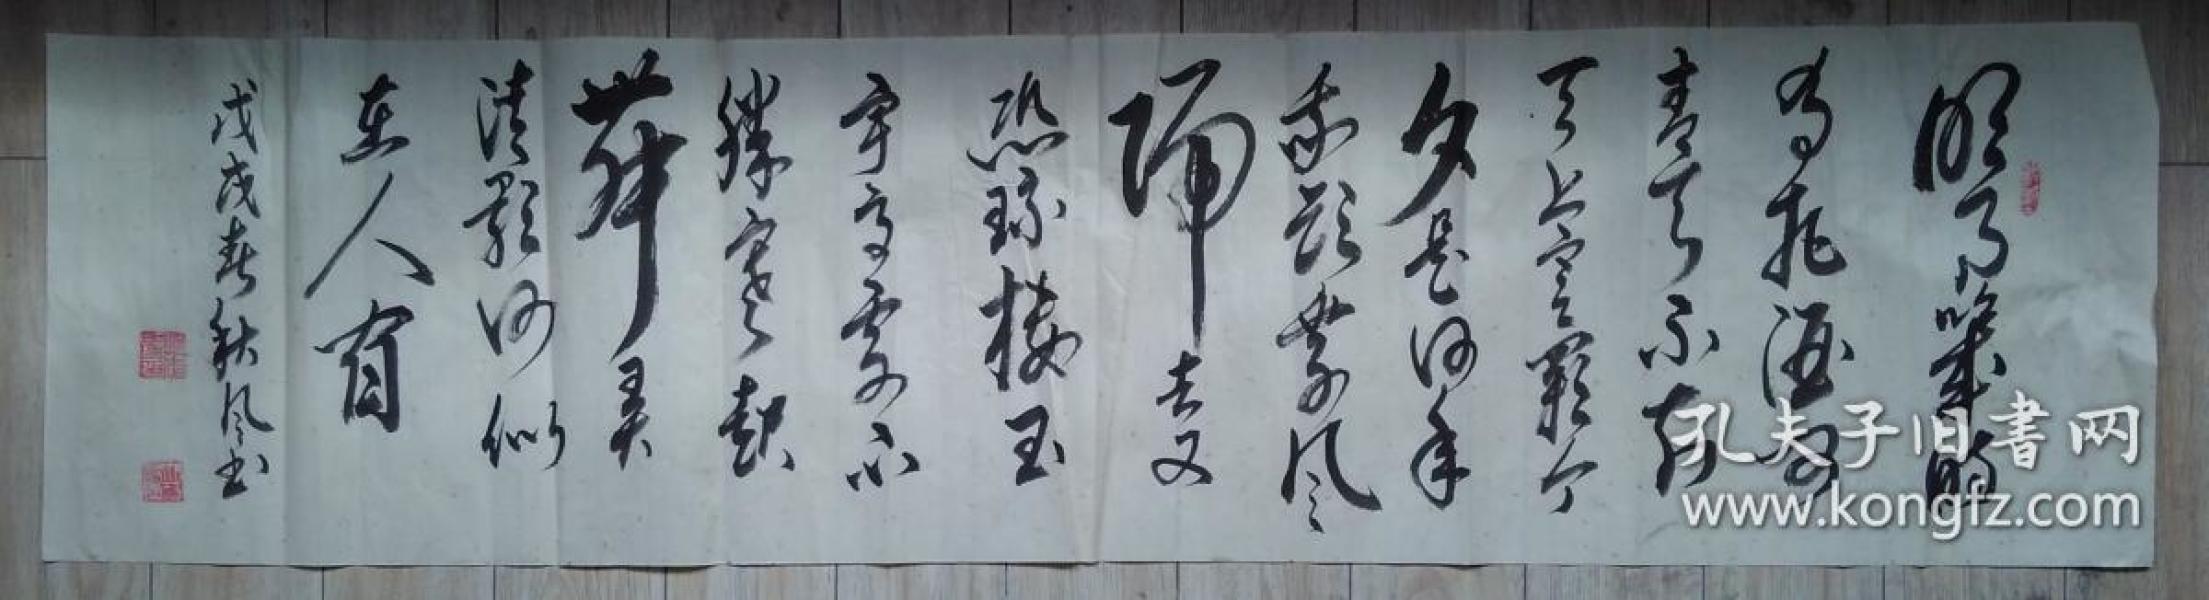 明月几时
有把酒问
青天不知
天上宫阙今
夕是何年
我欲乘风
归去又
恐琼楼玉
宇高处不
胜寒起
舞弄
清影何似
在人间
戊戌春秋风书
孔夫子旧书网
www.kongfz.com